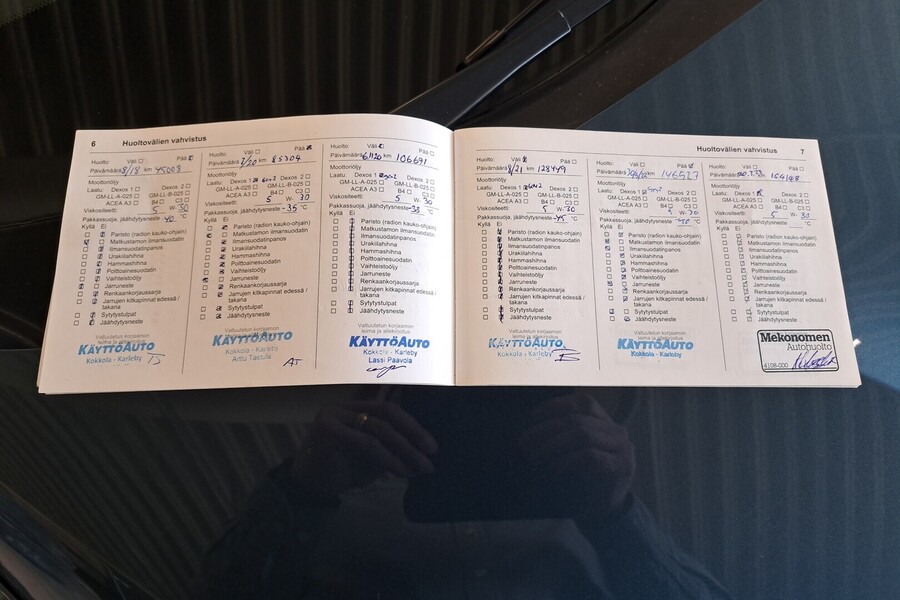 6 Huoltovälien vahvistus
Huolto: Väli Pää
Päivämäärä 8/18 km 45008
Moottoriöljy
Laatu: Dexos 1 Dexos 2
GM-LL-A-025 GM-LL-B-025
ACEA A3 B4 C3
Viskositeetti 5 W- 30
Pakkassuoja, jäähdytysneste -40 °C
Kyllä Ei
Paristo (radion kauko-ohjain)
Matkustamon ilmansuodatin
Ilmansuodatinpanos
Urakiilahihna
Hammashihna
Polttoainesuodatin
Vaihteistoöljy
Jarruneste
Renkaankorjaussarja
Jarrujen kitkapinnat edessä /
takana
Sytytystulpat
Jäähdytysneste
Valtuutetun korjaamon
leima ja allekirjoitus
KÄYTTÖAUTO
Kokkola - Karleby
Huolto: Väli Pää
Päivämäärä 2/20 km 85304
Moottoriöljy
Laatu: Dexos 1 Dexos 2
GM-LL-A-025 GM-LL-B-025
ACEA A3 B4 C3
Viskositeetti 5 W- 30
Pakkassuoja, jäähdytysneste -35 °C
Kyllä Ei
Paristo (radion kauko-ohjain)
Matkustamon ilmansuodatin
Ilmansuodatinpanos
Urakiilahihna
Hammashihna
Polttoainesuodatin
Vaihteistoöljy
Jarruneste
Renkaankorjaussarja
Jarrujen kitkapinnat edessä /
takana
Sytytystulpat
Jäähdytysneste
Valtuutetun korjaamon
leima ja allekirjoitus
KÄYTTÖAUTO
Kokkola - Karleby
Arttu Tastula
AT
Huolto: Väli Pää
Päivämäärä km 106671
Moottoriöljy
Laatu: Dexos 1 Dexos 2
GM-LL-A-025 GM-LL-B-025
ACEA A3 B4 C3
Viskositeetti 5 W- 30
Pakkassuoja, jäähdytysneste -35 °C
Kyllä Ei
Paristo (radion kauko-ohjain)
Matkustamon ilmansuodatin
Ilmansuodatinpanos
Urakiilahihna
Hammashihna
Polttoainesuodatin
Vaihteistoöljy
Jarruneste
Renkaankorjaussarja
Jarrujen kitkapinnat edessä /
takana
Sytytystulpat
Jäähdytysneste
Valtuutetun korjaamon
leima ja allekirjoitus
KÄYTTÖAUTO
Kokkola - Karleby
Lassi Paavola
Huoltovälien vahvistus 7
Huolto: Väli Pää
Päivämäärä 8/21 km 128449
Moottoriöljy
Laatu: Dexos 1 Dexos 2
GM-LL-A-025 GM-LL-B-025
ACEA A3 B4 C3
Viskositeetti 5 W- 30
Pakkassuoja, jäähdytysneste °C
Kyllä Ei
Paristo (radion kauko-ohjain)
Matkustamon ilmansuodatin
Ilmansuodatinpanos
Urakiilahihna
Hammashihna
Polttoainesuodatin
Vaihteistoöljy
Jarruneste
Renkaankorjaussarja
Jarrujen kitkapinnat edessä /
takana
Sytytystulpat
Jäähdytysneste
Valtuutetun korjaamon
leima ja allekirjoitus
KÄYTTÖAUTO
Kokkola - Karleby
Huolto: Väli Pää
Päivämäärä km 146527
Moottoriöljy
Laatu: Dexos 1 Dexos 2
GM-LL-A-025 GM-LL-B-025
ACEA A3 B4 C3
Viskositeetti 5 W- 30
Pakkassuoja, jäähdytysneste °C
Kyllä Ei
Paristo (radion kauko-ohjain)
Matkustamon ilmansuodatin
Ilmansuodatinpanos
Urakiilahihna
Hammashihna
Polttoainesuodatin
Vaihteistoöljy
Jarruneste
Renkaankorjaussarja
Jarrujen kitkapinnat edessä /
takana
Sytytystulpat
Jäähdytysneste
Valtuutetun korjaamon
leima ja allekirjoitus
KÄYTTÖAUTO
Kokkola - Karleby
Huolto: Väli Pää
Päivämäärä km
Moottoriöljy
Laatu: Dexos 1 Dexos 2
GM-LL-A-025 GM-LL-B-025
ACEA A3 B4 C3
Viskositeetti 5 W- 30
Pakkassuoja, jäähdytysneste °C
Kyllä Ei
Paristo (radion kauko-ohjain)
Matkustamon ilmansuodatin
Ilmansuodatinpanos
Urakiilahihna
Hammashihna
Polttoainesuodatin
Vaihteistoöljy
Jarruneste
Renkaankorjaussarja
Jarrujen kitkapinnat edessä /
takana
Sytytystulpat
Jäähdytysneste
Mekonomen
Autohuolto
4108-000